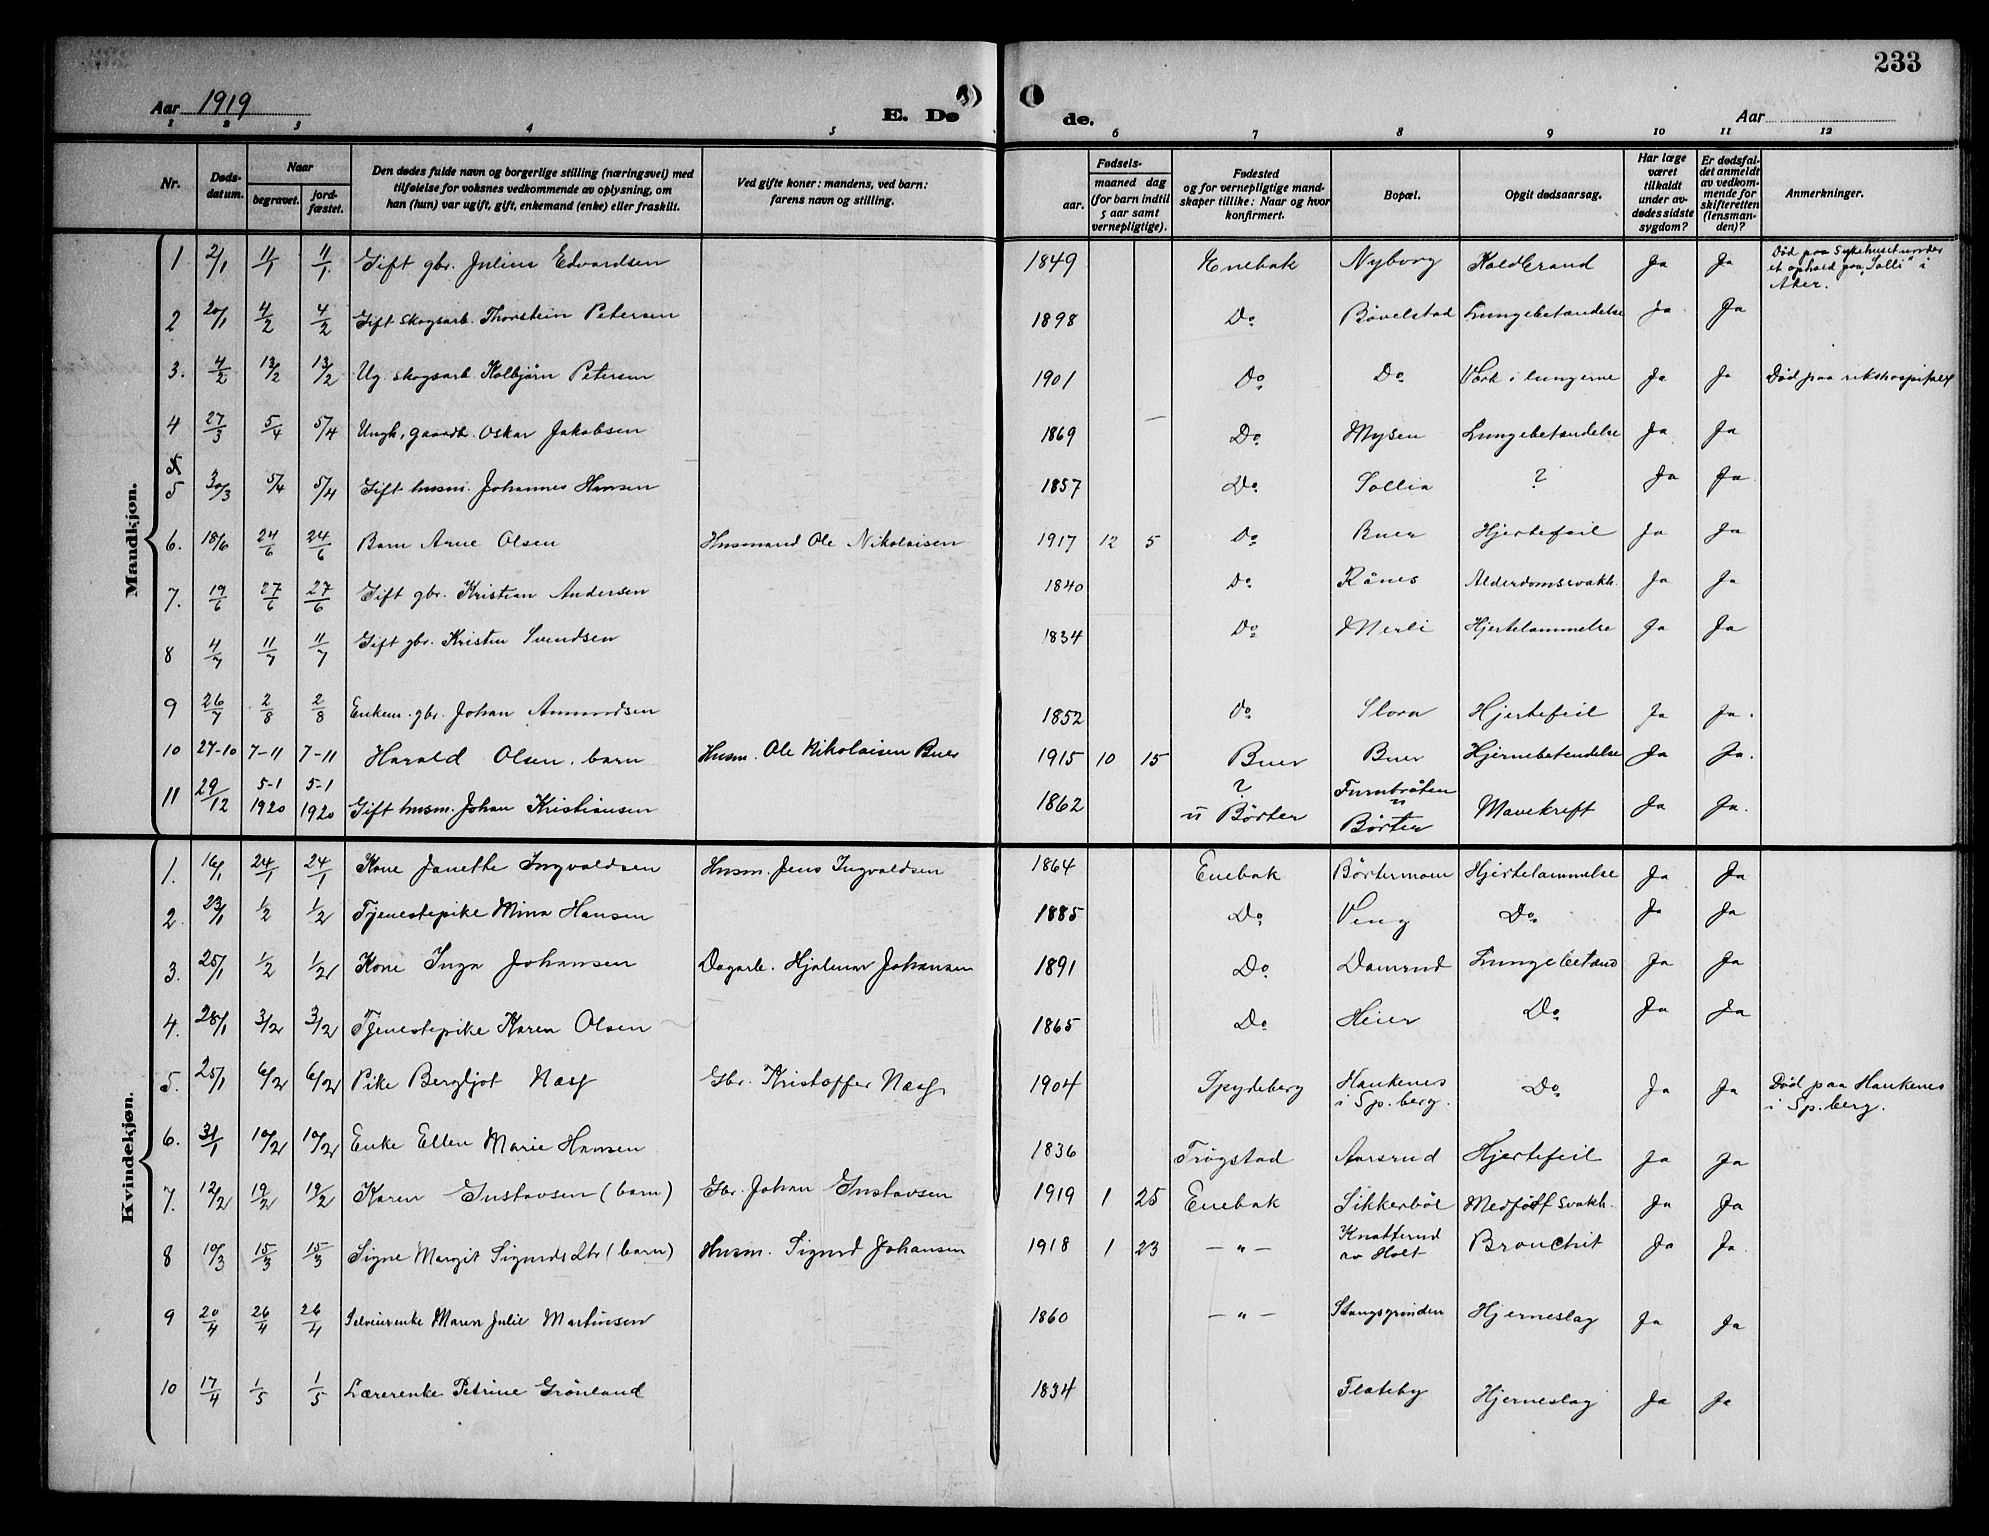 233
Aar 1919
E. Dø
de.
Aar
1 2 3 4 5 6 7 8 9 10 11 12
Nr.
Døds-
datum.
Naar
begravet.
jord-
fæstet.
Den dødes fulde navn og borgerlige stilling (næringsvei) med
tilføielse for voksnes vedkommende av oplysning, om
han (hun) var ugift, gift, enkemand (enke) eller fraskilt.
Ved gifte koner: mandens, ved barn:
farens navn og stilling.
Fødsels-
aar.
maaned dag
(for barn indtil
5 aar samt
vernepligtige).
Fødested
og for vernepligtige mand-
skaper tillike: Naar og hvor
konfirmert.
Bopæl.
Opgit dødsaarsag.
Har læge
været
tilkaldt
under av-
dødes sidste
sygdom?
Er dødsfal-
det anmeldt
av vedkom-
mende for
skifteretten
(lensman-
den)?
Anmerkninger.
Mandkjøn.
1 2/1 11/1 11/1 Gift gbr. Julius Edvardsen 1849 Enebak Nyborg Koldbrand Ja Ja Død paa Sykehuset under
et ophold paa "Solli" i
Aker.
2 20/1 4/2 4/2 Gift skogsarb. Thorstein Petersen 1898 Do Bøvelstad Lungebetændelse Ja Ja
3. 4/2 13/2 13/2 Ug. skogsarb. Kolbjørn Petersen 1901 Do Do Værk i lungerne Ja Ja Død paa rikshospitalet
4 27/3 5/4 5/4 Ungk. gaardbr. Oskar Jakobsen 1869 Do Mysen Lungebetændelse Ja Ja
5 30/3 5/4 5/4 Gift husm. Johannes Hansen 1857 Do Sollia ? Ja Ja
6. 18/6 24/6 24/6 Barn Arne Olsen Husmand Ole Nikolaisen 1917 12 5 Do Buer Hjertefeil Ja Ja
7. 19/6 27/6 27/6 Gift gbr. Kristian Andersen 1840 Do Rånes Alderdomssvakh. Ja Ja
8 4/7 11/7 11/7 Gift gbr. Kristen Svendsen 1834 Do Merli Hjertelammelse Ja Ja
9 26/7 2/8 2/8 Enkem. gbr. Johan Amundsen 1852 Do Slora Hjertefeil Ja Ja.
10 27-10 7-11 7-11 Harald Olsen, barn Husm. Ole Nikolaisen Buer 1915 10 15 Buer Buer Hjernebetendelse Ja Ja.
11 29/12 5-1 1920 5-1 1920 Gift husm. Johan Kristiansen 1862 ?
u Børter Furubråten
u
Børter Mavekreft Ja Ja.
Kvindekjøn.
1. 16/1 24/1 24/1 Kone Janethe Ingvaldsen Husm. Jens Ingvaldsen 1864 Enebak Børtermoen Hjertelammelse Ja Ja
2. 23/1 1/2 1/2 Tjenestepike Mina Hansen 1885 Do Veng Do Ja Ja
3. 25/1 1/2 1/2 Kone Inga Johansen Dagarb. Hjalmar Johansen 1891 Do Damrud Lungebetænd Ja Ja
4. 28/1 3/2 3/2 Tjenestepike Karen Olsen 1865 Do Heier Do Ja Ja
5. 25/1 6/2 6/2 Pike Bergljot Næss Gbr. Kristoffer Næss 1904 Spydeberg Haukenes
i Sp.berg. Do Ja Ja Død paa Haukenes
i Sp.berg.
6. 31/1 10/2 10/2 Enke Ellen Marie Hansen 1836 Trøgstad Aarsrud Hjertefeil Ja Ja
7. 12/2 19/2 19/2 Karen Gustavsen (barn) Gbr. Johan Gustavsen 1919 1 25 Enebak Sikkerbøl Medfødt svakh. Ja Ja
8 10/3 15/3 15/3 Signe Margit Sigurdsdtr (barn) Husm. Sigurd Johansen 1918 1 23 — " — Knatterud
av Holt Bronchit Ja Ja
9 20/4 26/4 26/4 Selveierenke Maren Julie Martinsen 1860 — " — Stangsgrinden Hjerneslag Ja Ja
10 17/4 1/5 1/5 Lærerenke Petrine Grønland 1834 Flateby Hjerneslag Ja Ja